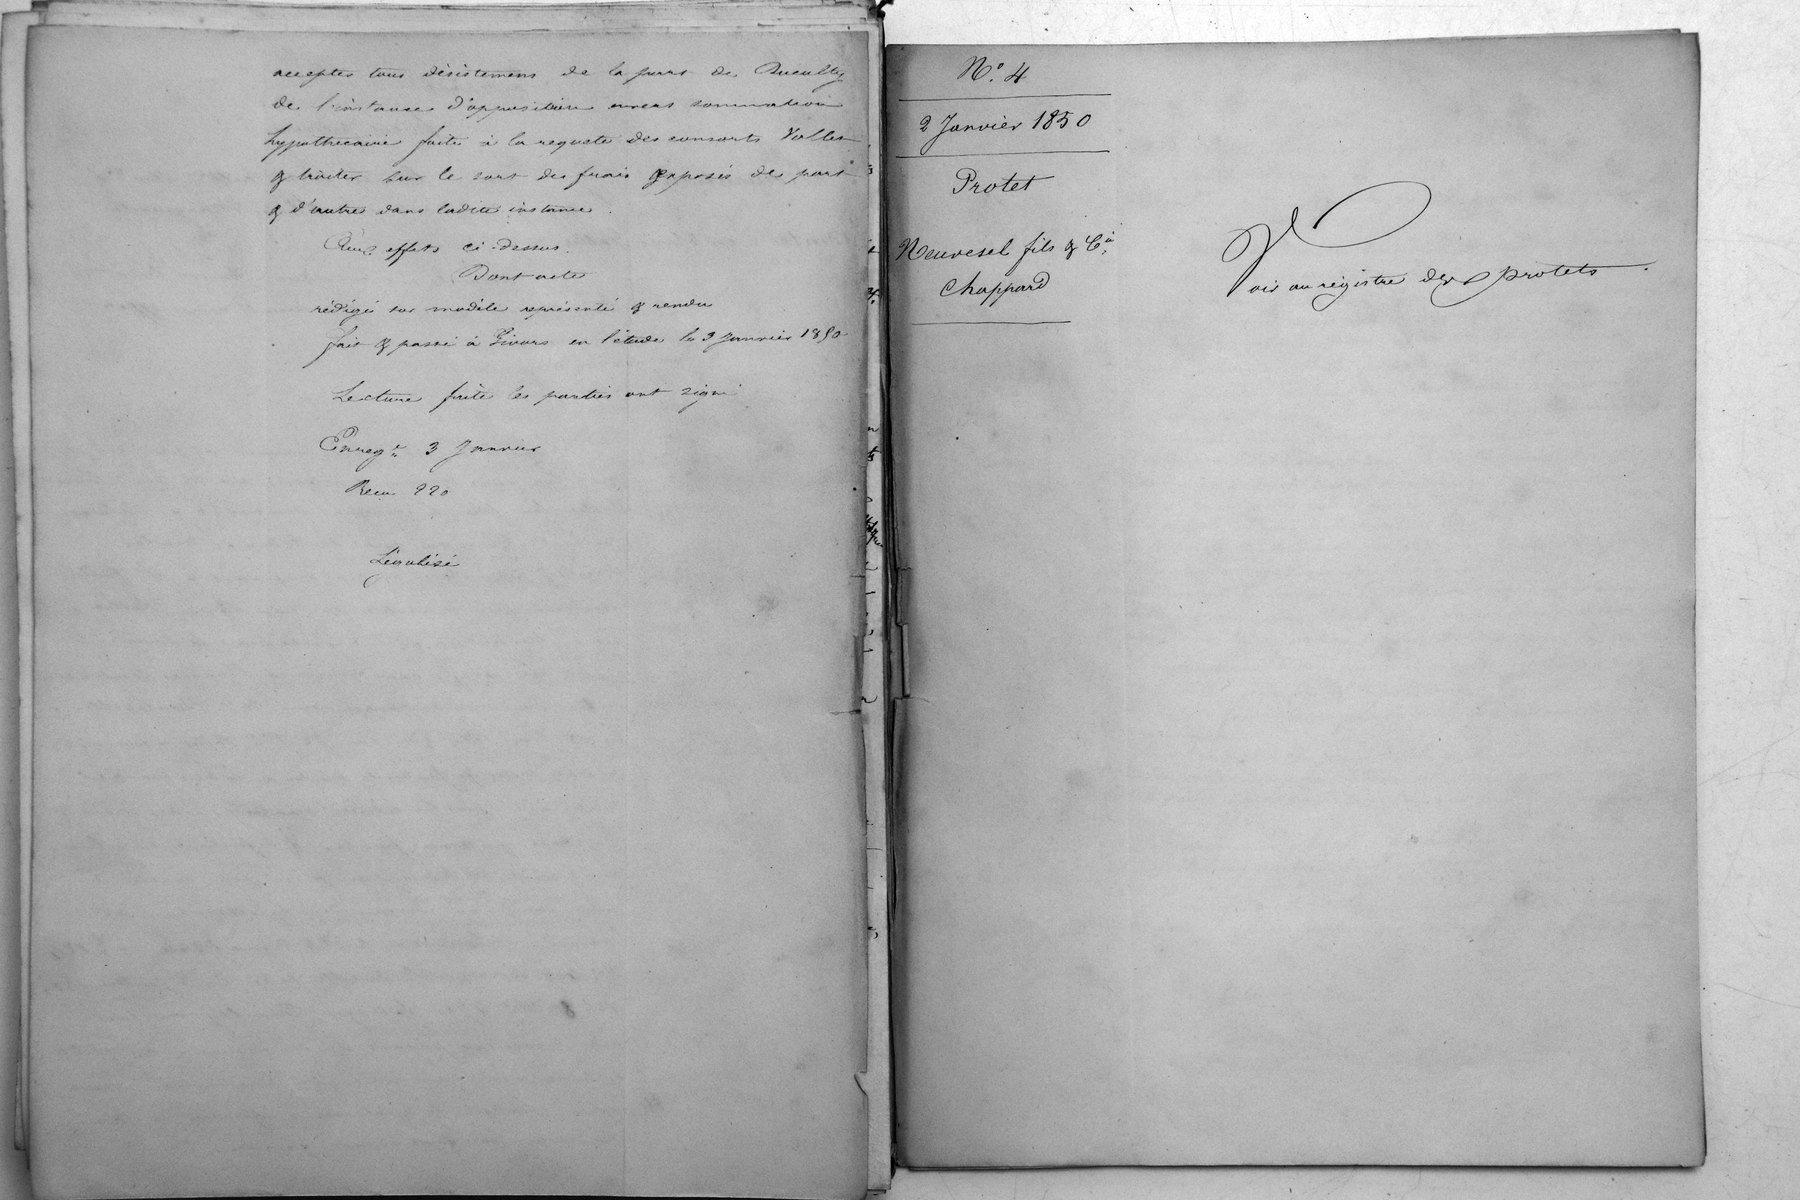 accepter tous désistemens de la part de
de l'instance d'opposition envers sommation
hypothecaire faite à la requete des consorts Vallet
& traiter sur le sort des frais exposés de part
& d'autre dans ladite instance.
Aux effets ci-dessus.
Dont acte
rédigé sur modèle représenté & rendu
fait & passé à Givors en l'étude le 3 Janvier 1850
Lecture faite les parties ont signé
Enregré 3 Janvier
Recu 220
Légalisé
N° 4
2 Janvier 1850
Protet
Neuvesel fils & Cie
Chappard
Voir au régistre des protets.